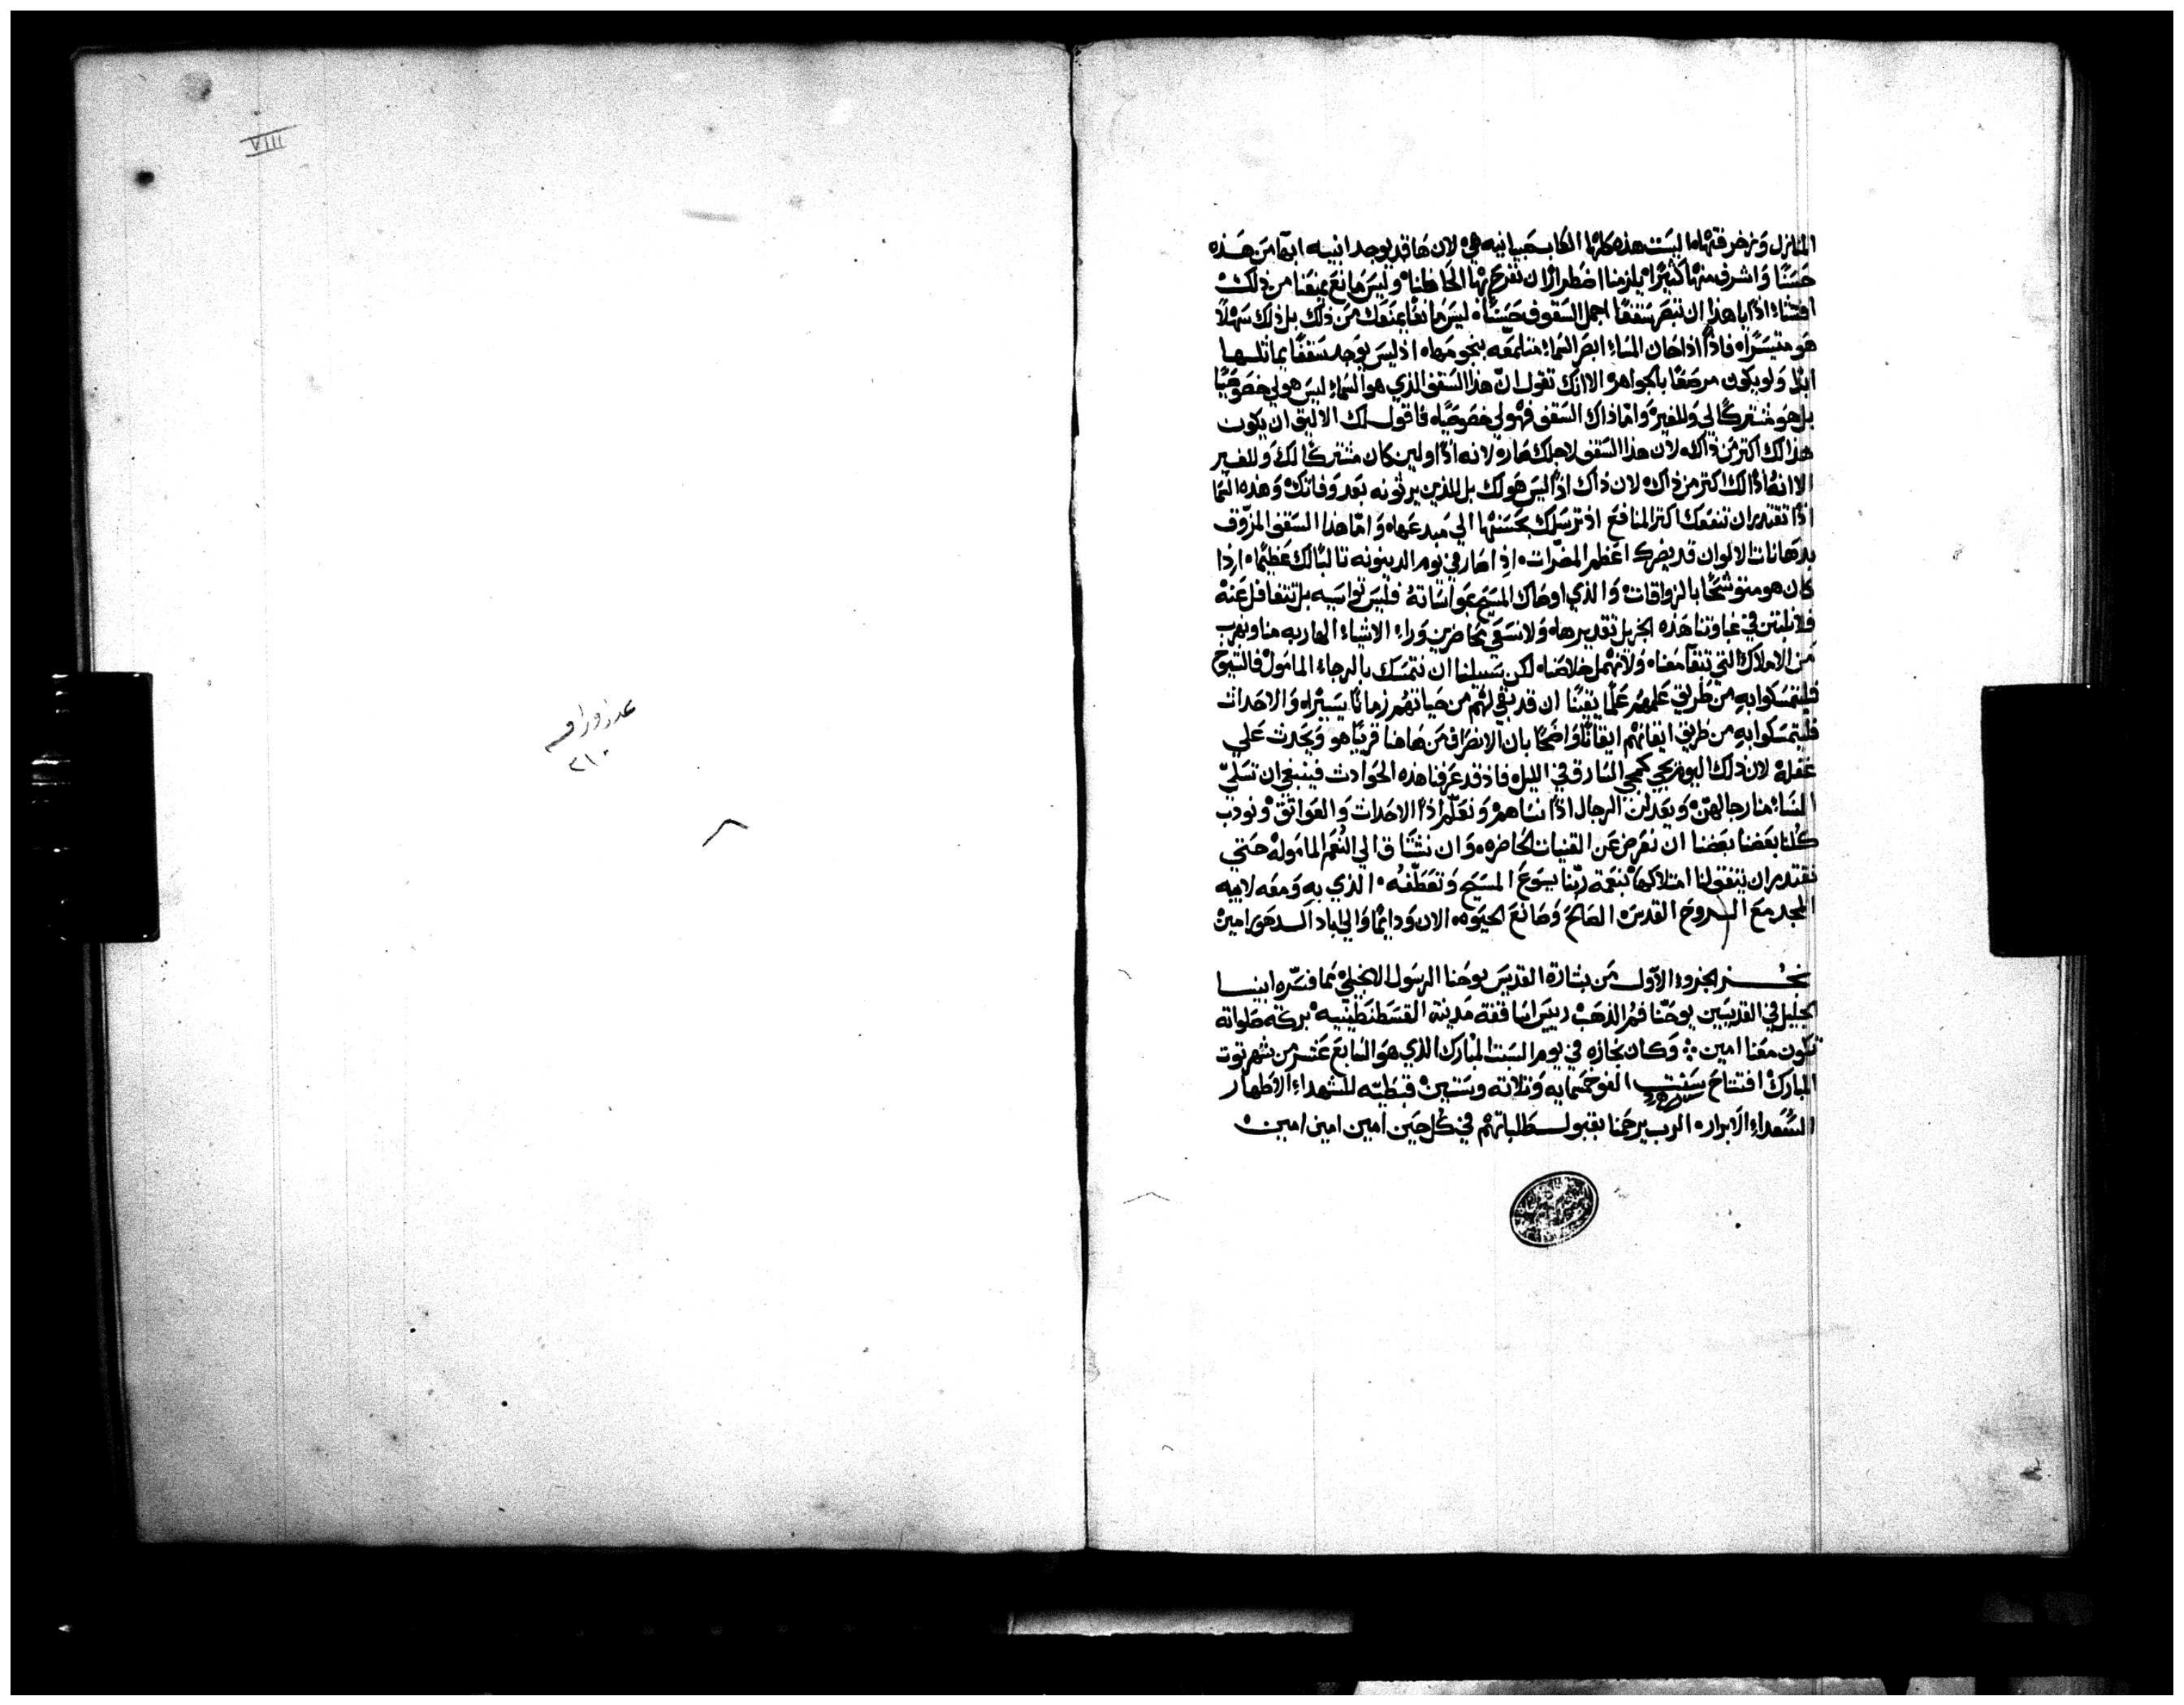 المنازل وزخرفتها ما ليست هذه كلها الكاب حبيانيه هي لان ها قد يوجد ابنيه ابها من هذه
حسنًا واشرف منها كثيرًا ه يلزمنا اضطرارًا ان نفرح بها الحاظنا ه وليس مانع يمنعنا من ذلك
افتشاء اذًا يا هذا ان تبصر سقفًا اجمل السقوف حسنًا ه ليس مانعًا يمنعك من ذلك بل ذلك سهلًا
هو متيسرًا ه فاذًا اذا حان المساء ابصر السماء متلمعه بنجومها ه اذ ليس يوجد سقفًا يماثلها
ابدًا ولو يكون مرصعًا بالجواهر الا انك تقول ان هذا السقف الذي هو السماء ليس هو لي خصوصيًا
بل هو مشتركًا لي وللغير ه واما ذاك السقف فهو لي خصوصيًا ه فاقول لك الاليق ان يكون
هذا لك اكثر من ذاك ه لان هذا السقف لاجلك صار ه لانه اذًا ولين كان مشتركًا لك وللغير
الا انه اذًا لك اكثر من ذاك ه لان ذاك اذًا ليس هو لك بل للذين يرثونه بعد وفاتك ه وهذه السما
اذًا تقتدر ان تنفعك اكثر المنافع اذ ترسلك بحسنها الي مبدعها ه واما هذا السقف المزوف
بدهانات الالوان قد يضرك اعظم المضرات ه اذ اصار في يوم الدينونه ثالبًا لك عظيمًا ه اذا
كان هو متوشحًا بالزواقات ه والذي اوصاك المسيح بمواساته فليس تواسيه بل تتغافل عنه
فلا نلبثن في غباوتنا هذه الجزيل تقديرها ه ولا نسعي محاضرين وراء الاشياء الهاربه منا ونهرب
من الاملاك التي تبقا معنا ه ولا نهمل خلاصنا ه لكن سبيلنا ان نتمسك بالرجاء المامول ه فالشيوخ
فليتمسكوا به من طريق علمهم علمًا يقينًا ان قد بقي لهم من حياتهم زمانًا يسيرًا ه والاحداث
فليتمسكوا به من طريق ايقانهم ايقانًا واضحًا بان الانصراف من هاهنا قريبًا هو ويحدث علي
غفلة ه لان ذلك اليوم يجي كمجي السارق في الليل ه فاذ قد عرفنا هذه الحوادث فينبغي ان تسلي
النساء منا رجالهن ه ويعدلن الرجال اذًا نساهم ه ونعلم اذًا الاحداث والعواتق ه ونودب
كلنا بعضنا بعضنا ان نعرض عن القنيات الحاضره ه وان نشتاق الي النعم المامولة ه حتي
نقتدر ان يتفق لنا امتلاكها بنعمة ربنا يسوع المسيح وتعطفه ه الذي به ومعه لابيه
المجد مع الروح القدس ه الصالح وصانع الحيوه ه الان ودائمًا والي اباد الدهور امين ه
نجز الجزو الاول من بشارة القديس يوحنا الرسول الانجلي مما فسره ابينا
الجليل في القديسين يوحنا فم الذهب رييس اساقفة مدينة القسطنطينيه ه بركة صلواته
تكون معنا امين ⁘ وكان نجازه في يوم السبت المبارك الذي هو السابع عشر من شهر توت
المبارك ه افتتاح سنت الف وخمسمايه وثلاثه وستين ه قبطيه للشهداء الاطهار
السعداء الابرار ه الرب يرحمنا بقبول طلباتهم في كل حين امين امين امين ه
VIII
عدد اوراقه
٢١٠